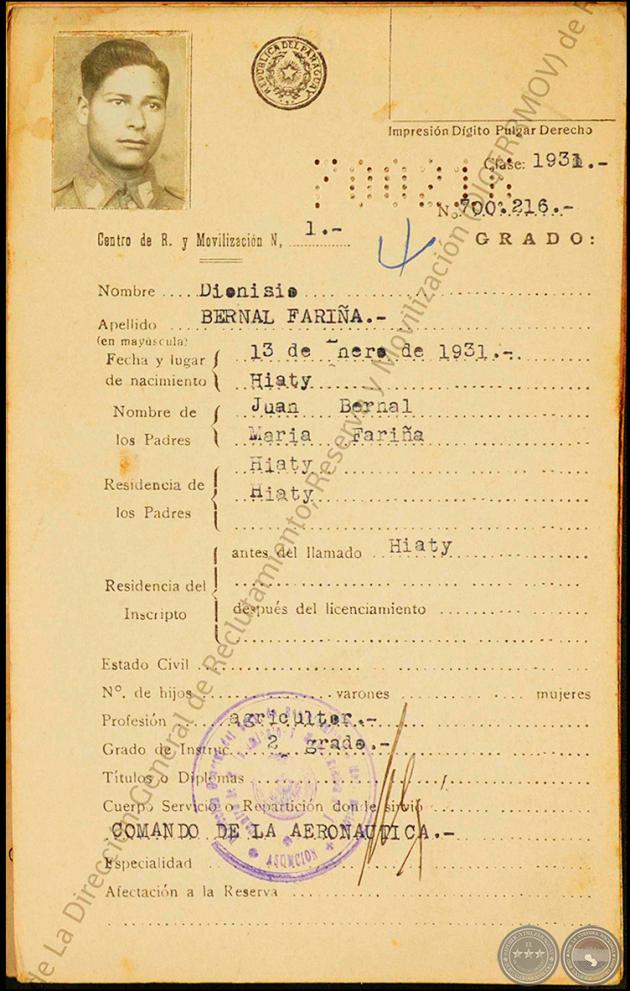 REPUBLICA DEL PARAGUAY
Impresión Dígito Pulgar Derecho
Clase: 1931.-
No. 700.216.-
Centro de R. y Movilización N, 1.-
GRADO:
Nombre Dionisio
Apellido BERNAL FARIÑA.-
(en mayúscula)
Fecha y lugar de nacimiento 13 de nero de 1931.-
Hiaty
Nombre de los Padres Juan Bernal
Maria Fariña
Residencia de los Padres Hiaty
Hiaty
Residencia del Inscripto antes del llamado Hiaty
después del licenciamiento
Estado Civil
Nº. de hijos varones mujeres
Profesión agricultor.-
Grado de Instruc. 2 grado.-
Títulos o Diplomas
Cuerpo Servicio o Repartición donde sirvió
COMANDO DE LA AERONAUTICA.-
Especialidad
Afectación a la Reserva
ASUNCION
de La Dirección General de Reclutamiento, Reserva y Movilización (DIGERRMOV) de R